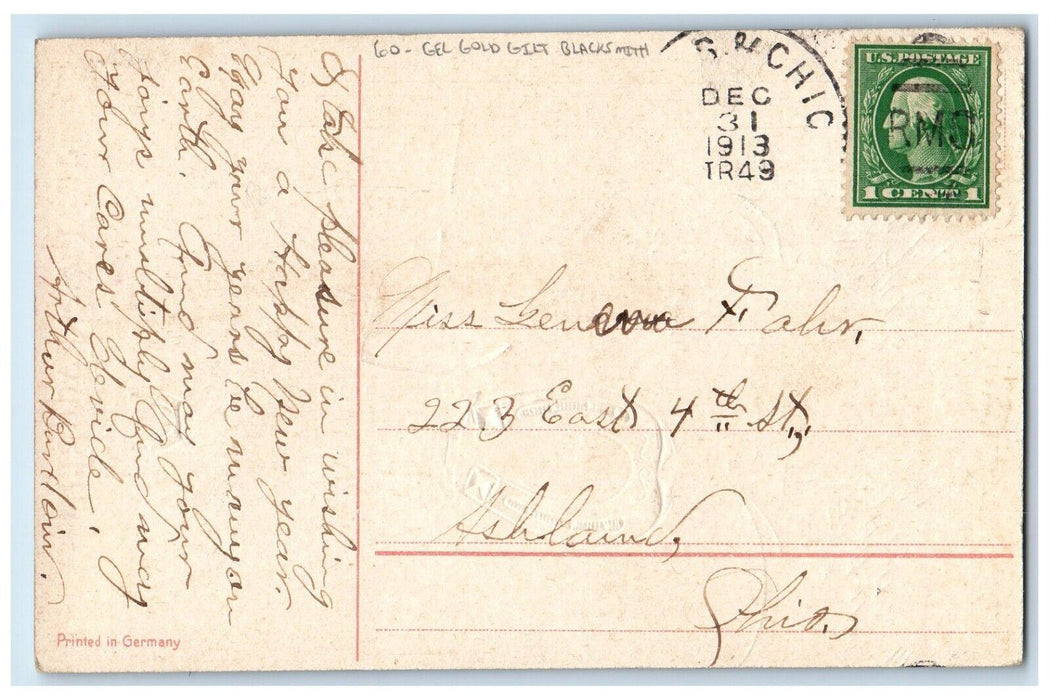 60- GEL GOLD GILT BLACKSMITH
& CHIC
DEC
31
1913
TR49
U.S. POSTAGE
RMS
1 CENT 1
I take pleasure in wishing
you a Happy New year.
May your years be many on
Earth. And may your
joys multiply And may
your Cares devide.
Arthur
Miss Geneva Fahr,
223 East 4th St.,
Ashland,
Ohio.
Printed in Germany